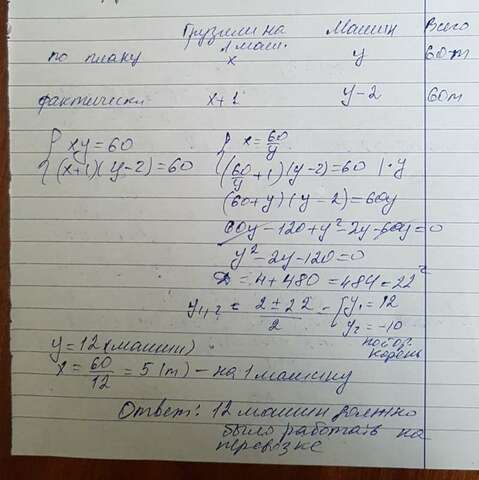 Грузили на 1 маш. Машин Всего
по плану x y 60т
фактически x+1 y-2 60т
{ xy=60
(x+1)(y-2)=60
{ x=60/y
(60/y+1)(y-2)=60 |·y
(60+y)(y-2)=60y
60y-120+y²-2y-60y=0
y²-2y-120=0
D=4+480=484=22²
y1,2=(2±22)/2=[y1=12
y2=-10
посто. корень
y=12(машин)
x=60/12=5(т)-на 1 машину
Ответ: 12 машин должно
было работать на
перевозке